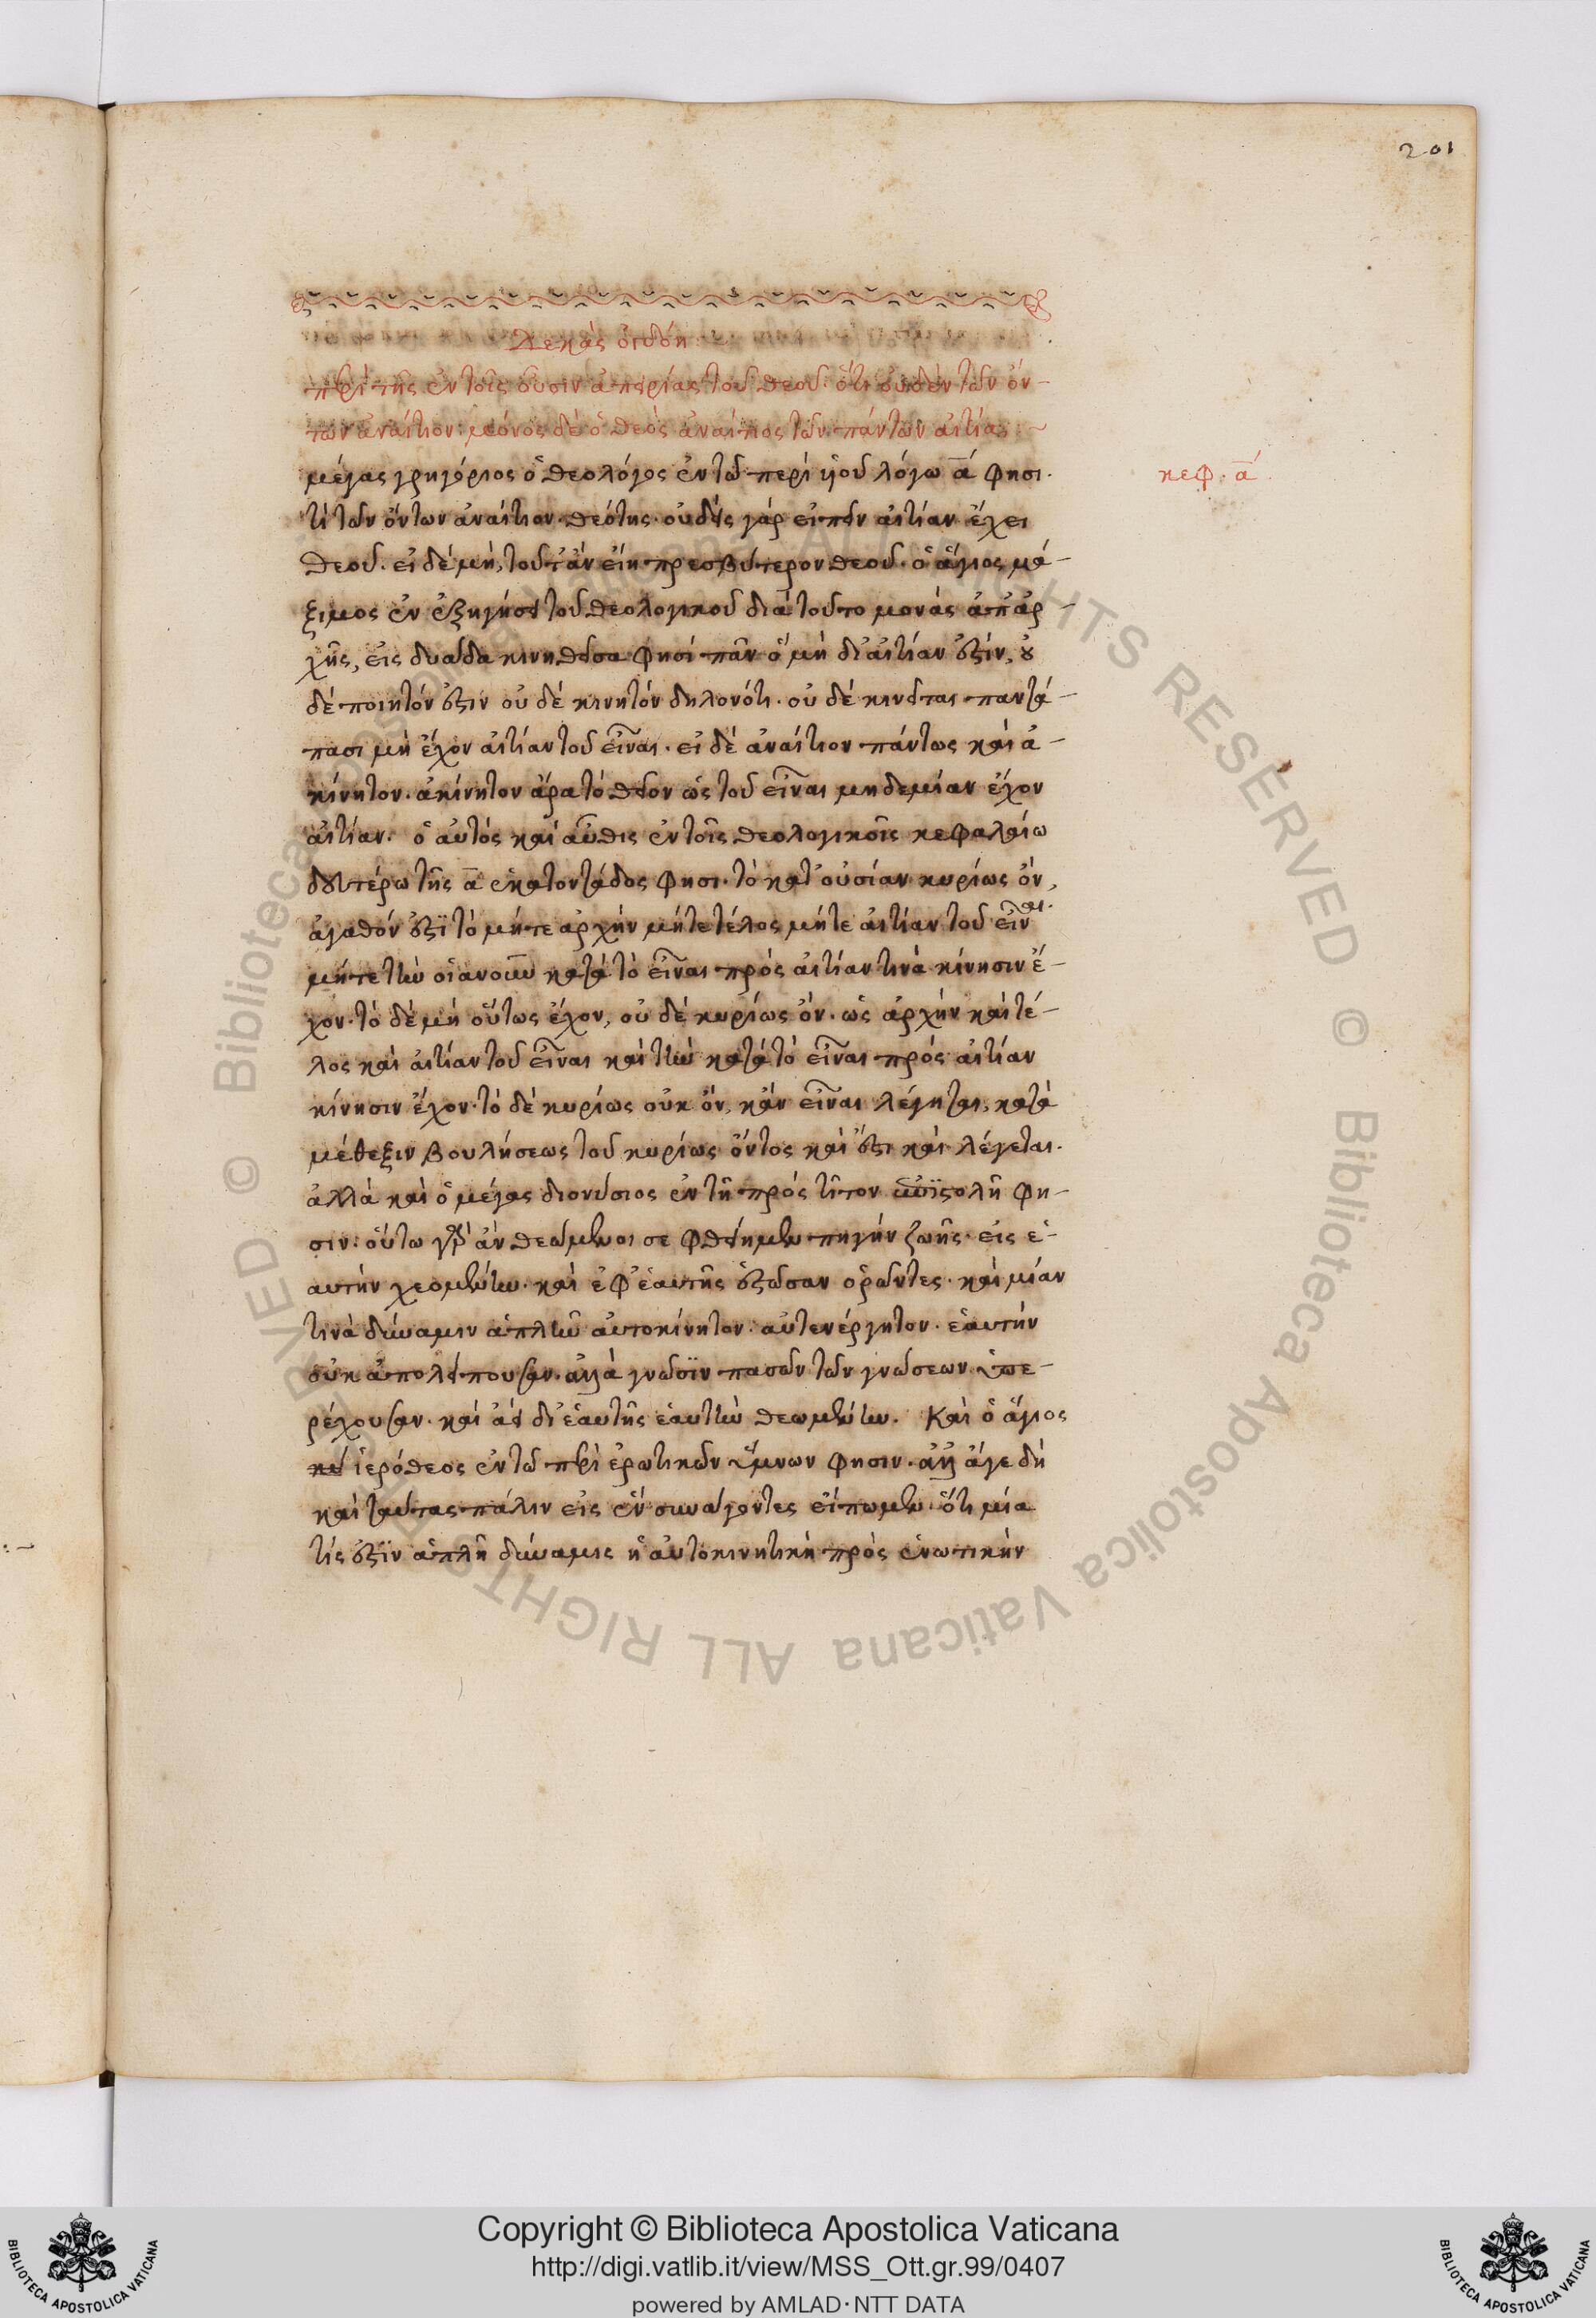 201
Δεκὰς ὀγδόη
περὶ τῆς ἐν τοῖς οὖσιν ἀπειρίας τοῦ θεοῦ· ὅτι οὐδὲν τῶν ὄν-
των ἀναίτιον· μόνος δὲ ὁ θεὸς ἀναίτιος τῶν πάντων αἰτία :~
μέγας γρηγόριος ὁ θεολόγος ἐν τῶ περὶ υἱοῦ λόγω α΄ φησι·
κεφ. α΄
τί τῶν ὄντων ἀναίτιον· θεότης· οὐδεὶς γὰρ εἰπεῖν αἰτίαν ἔχει
θεοῦ· εἰ δὲ μὴ, τοῦτ' ἂν εἴη πρεσβύτερον θεοῦ· ὁ ἅγιος μά-
ξιμος ἐν ἐξηγήσει τοῦ θεολογικοῦ διὰ τοῦτο μονὰς ἀπ' ἀρ-
χῆς, εἰς δυάδα κινηθεῖσα φησὶ πᾶν ὃ μὴ δι' αἰτίαν ἐστίν, οὐ
δὲ ποιητόν ἐστιν οὐ δὲ κινητὸν δηλονότι· οὐ δὲ κινεῖται παντά-
πασι μὴ ἔχον αἰτίαν τοῦ εἶναι· εἰ δὲ ἀναίτιον πάντως καὶ ἀ-
κίνητον· ἀκίνητον ἄρα τὸ θεῖον ὡς τοῦ εἶναι μηδεμίαν ἔχον
αἰτίαν· ὁ αὐτὸς καὶ αὖθις ἐν τοῖς θεολογικοῖς κεφαλαίω
δευτέρω τῆς α΄ ἑκατοντάδος φησι· τὸ κατ' οὐσίαν κυρίως ὄν,
ἀγαθόν ἐστὶ τὸ μήτε ἀρχὴν μήτε τέλος μήτε αἰτίαν τοῦ εἶναι·
μήτε τὴν οἱανοῦν κατὰ τὸ εἶναι πρὸς αἰτίαν τινὰ κίνησιν ἔ-
χον· τὸ δὲ μὴ οὕτως ἔχον, οὐ δὲ κυρίως ὄν· ὡς ἀρχὴν καὶ τέ-
λος καὶ αἰτίαν τοῦ εἶναι καὶ τὴν κατὰ τὸ εἶναι πρὸς αἰτίαν
κίνησιν ἔχον· τὸ δὲ κυρίως οὐκ ὄν, κἂν εἶναι λέγηται, κατὰ
μέθεξιν βουλήσεως τοῦ κυρίως ὄντος καὶ ἔστι καὶ λέγεται·
ἀλλὰ καὶ ὁ μέγας διονύσιος ἐν τῆ πρὸς τίτον ἐπιστολῆ φη-
σιν· οὕτω γὰρ ἂν θεώμενοι σε φθείημεν πηγὴν ζωῆς· εἰς ἑ-
αυτὴν χεομένην· καὶ ἐφ' ἑαυτῆς ἑστῶσαν ὁρῶντες· καὶ μίαν
τινὰ δύναμιν ἁπλῆν αὐτοκίνητον· αὐτενέργητον· ἑαυτὴν
οὐκ ἀπολείπουσαν· ἀλλὰ γνῶσϊν πασῶν τῶν γνώσεων ὑπε-
ρέχουσαν· καὶ ἀεὶ δι' ἑαυτῆς ἑαυτὴν θεωμένην. Καὶ ὁ ἅγιος
ἱερόθεος ἐν τῶ περὶ ἐρωτικῶν ὕμνων φησιν· ἀλλ' ἄγε δὴ
καὶ ταύτας πάλιν εἰς ἓν συναγόντες εἴπωμεν ὅτι μία
τίς ἐστὶν ἁπλῆ δύναμις ἡ αὐτοκινητικὴ πρὸς ἑνωτικὴν
© Biblioteca Apostolica Vaticana ALL RIGHTS RESERVED
Copyright © Biblioteca Apostolica Vaticana
http://digi.vatlib.it/view/MSS_Ott.gr.99/0407
powered by AMLAD·NTT DATA
BIBLIOTECA APOSTOLICA VATICANA
BIBLIOTECA APOSTOLICA VATICANA